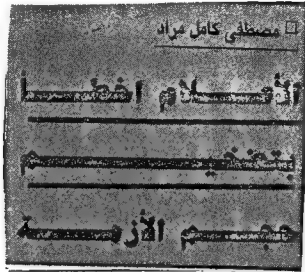 مصطفى كامل مراد
الأعلام أخطأ
بتضخيم
حجم الأزمة